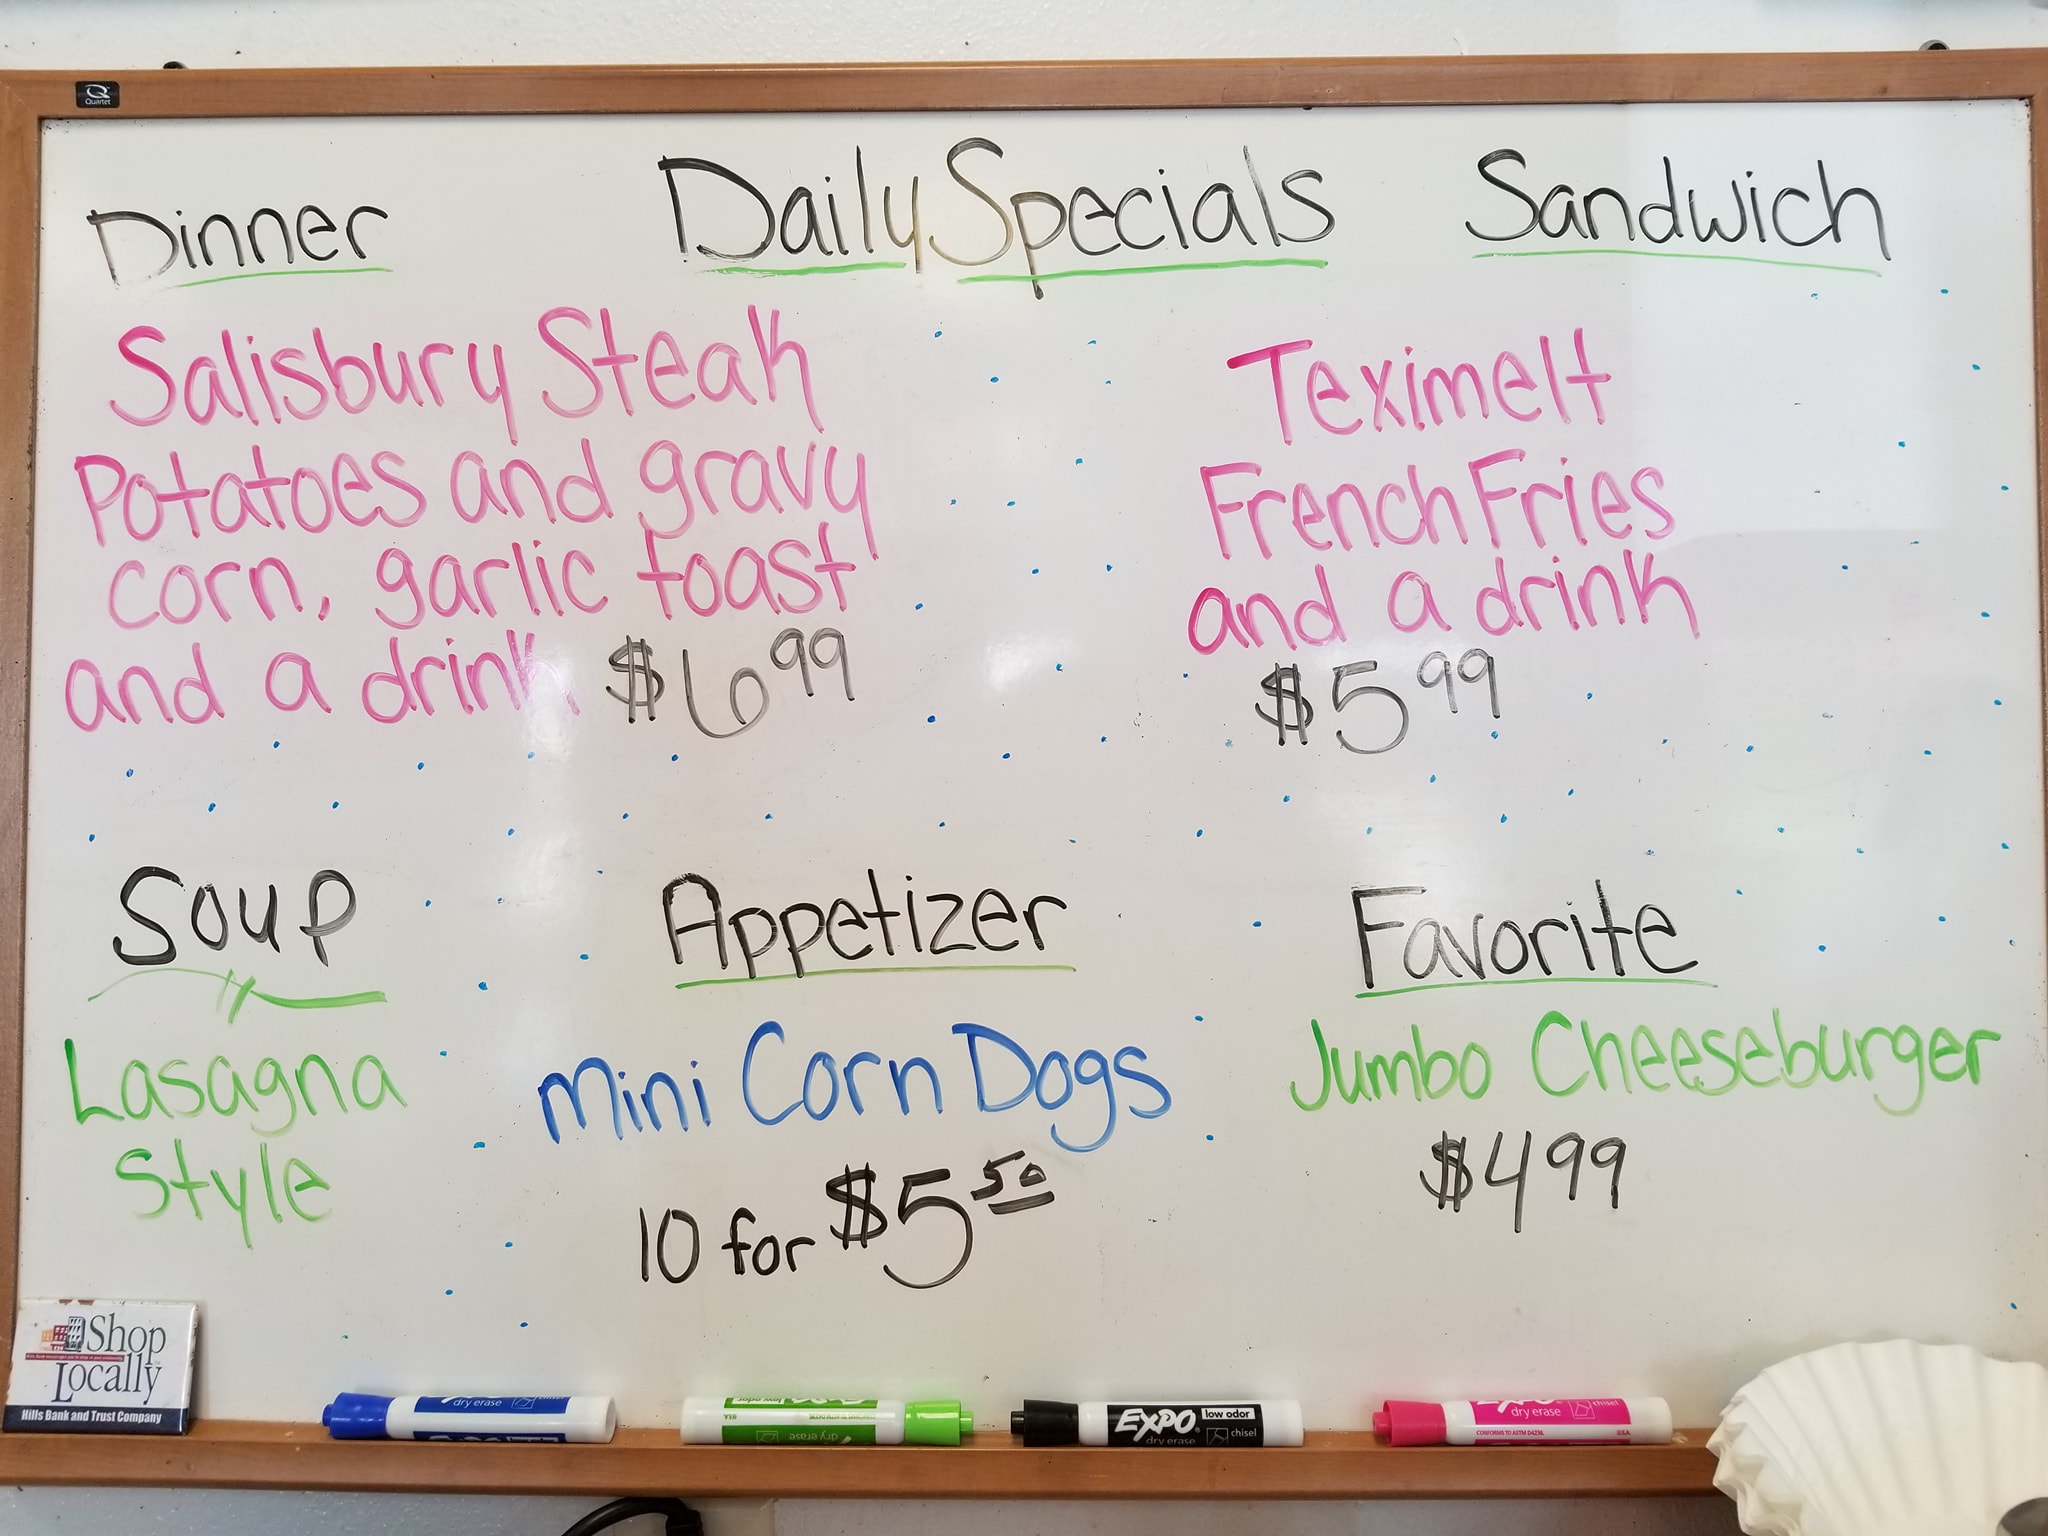 Quartet
Daily Specials
Dinner
Salisbury Steak
Potatoes and gravy
corn, garlic toast
and a drink $6.99
Sandwich
Teximelt
French Fries
and a drink
$5.99
Soup
Lasagna
Style
Appetizer
Mini Corn Dogs
10 for $5.50
Favorite
Jumbo Cheeseburger
$4.99
Shop
Locally
Hills Bank and Trust Company
dry erase
low odor
USA
dry erase
EXPO
low odor
dry erase
chisel
EXPO
dry erase
chisel
CONFORMS TO ASTM D4236
U.S.A.